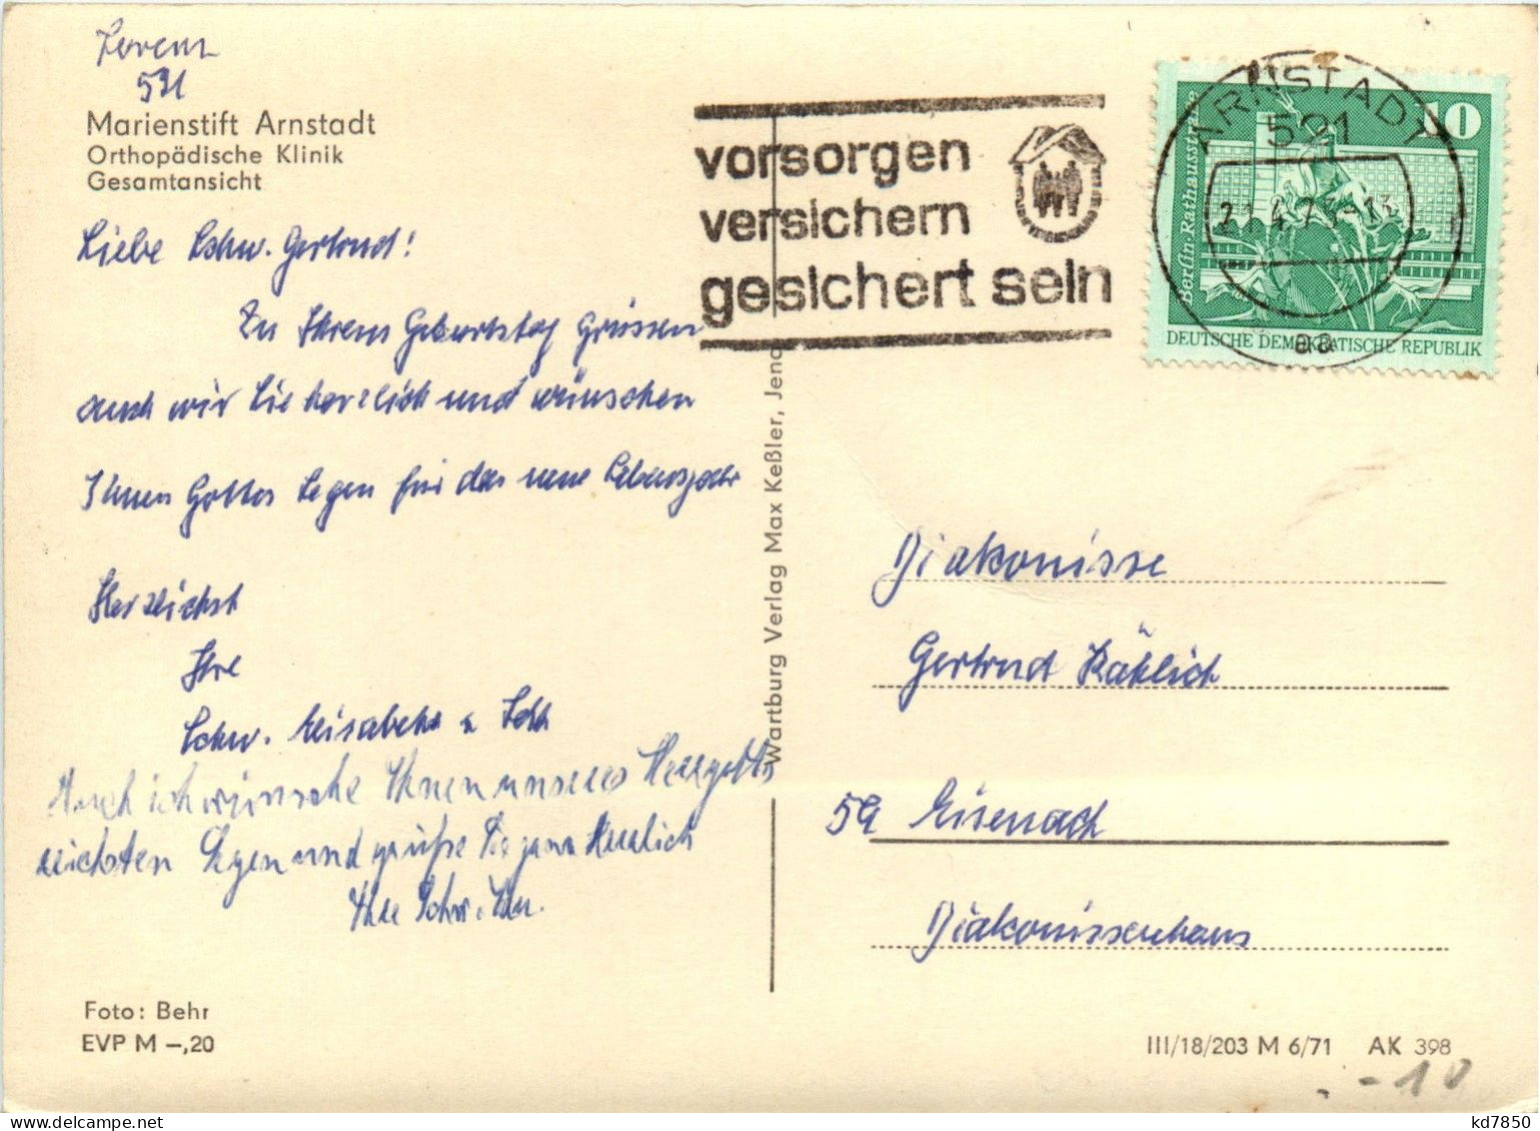 Lorenz
521
Marienstift Arnstadt
Orthopädische Klinik
Gesamtansicht
Liebe Schw. Gertrud!
Zu Ihrem Geburtstag grüssen
auch wir Sie herzlich und wünschen
Ihnen Gottes Segen für das neue Lebensjahr
Herzlichst
Ihre
Schw. Elisabeth u.
Auch ich wünsche Ihnen unseres Herrgotts
reichsten Segen und grüße Sie ganz herzlich
Ihre Schw.
Foto: Behr
EVP M –,20
vorsorgen
versichern
gesichert sein
ARNSTADT
521
21.4.7 -13
aa
10
Berlin-Rathausstraße
DEUTSCHE DEMOKRATISCHE REPUBLIK
Wartburg Verlag Max Keßler, Jena
Diakonisse
Gertrud
59 Eisenach
Diakonissenhaus
III/18/203 M 6/71 AK 398
-10
kd7850